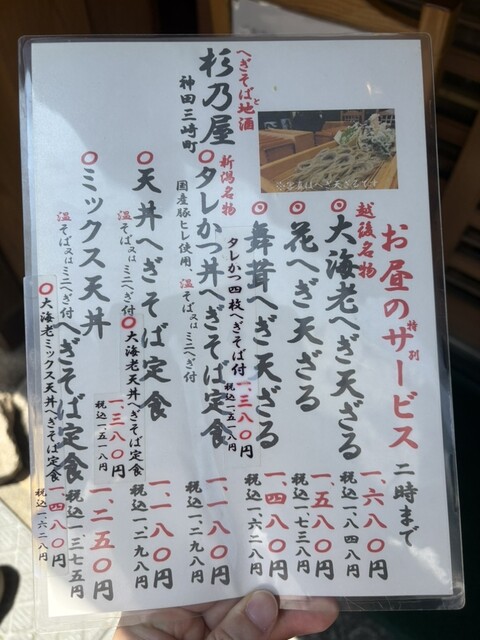 お昼の特別サービス 二時まで
越後名物
大海老へぎ天ざる
一、六八〇円
税込一、八四八円
花へぎ天ざる
一、五八〇円
税込一、七三八円
舞茸へぎ天ざる
一、四八〇円
税込一、六二八円
新潟名物
タレかつ丼へぎそば定食
国産豚ヒレ使用、温そば又はミニへぎ付
一、一八〇円
税込一、二九八円
タレかつ四枚へぎそば付
一、三八〇円
税込一、五一八円
天丼へぎそば定食
温そば又はミニへぎ付
一、一八〇円
税込一、二九八円
大海老天丼へぎそば定食
一、三八〇円
税込一、五一八円
ミックス天丼へぎそば定食
温そば又はミニへぎ付
一、二五〇円
税込一、三七五円
大海老ミックス天丼へぎそば定食
一、四八〇円
税込一、六二八円
へぎそばと地酒
杉乃屋
神田三崎町